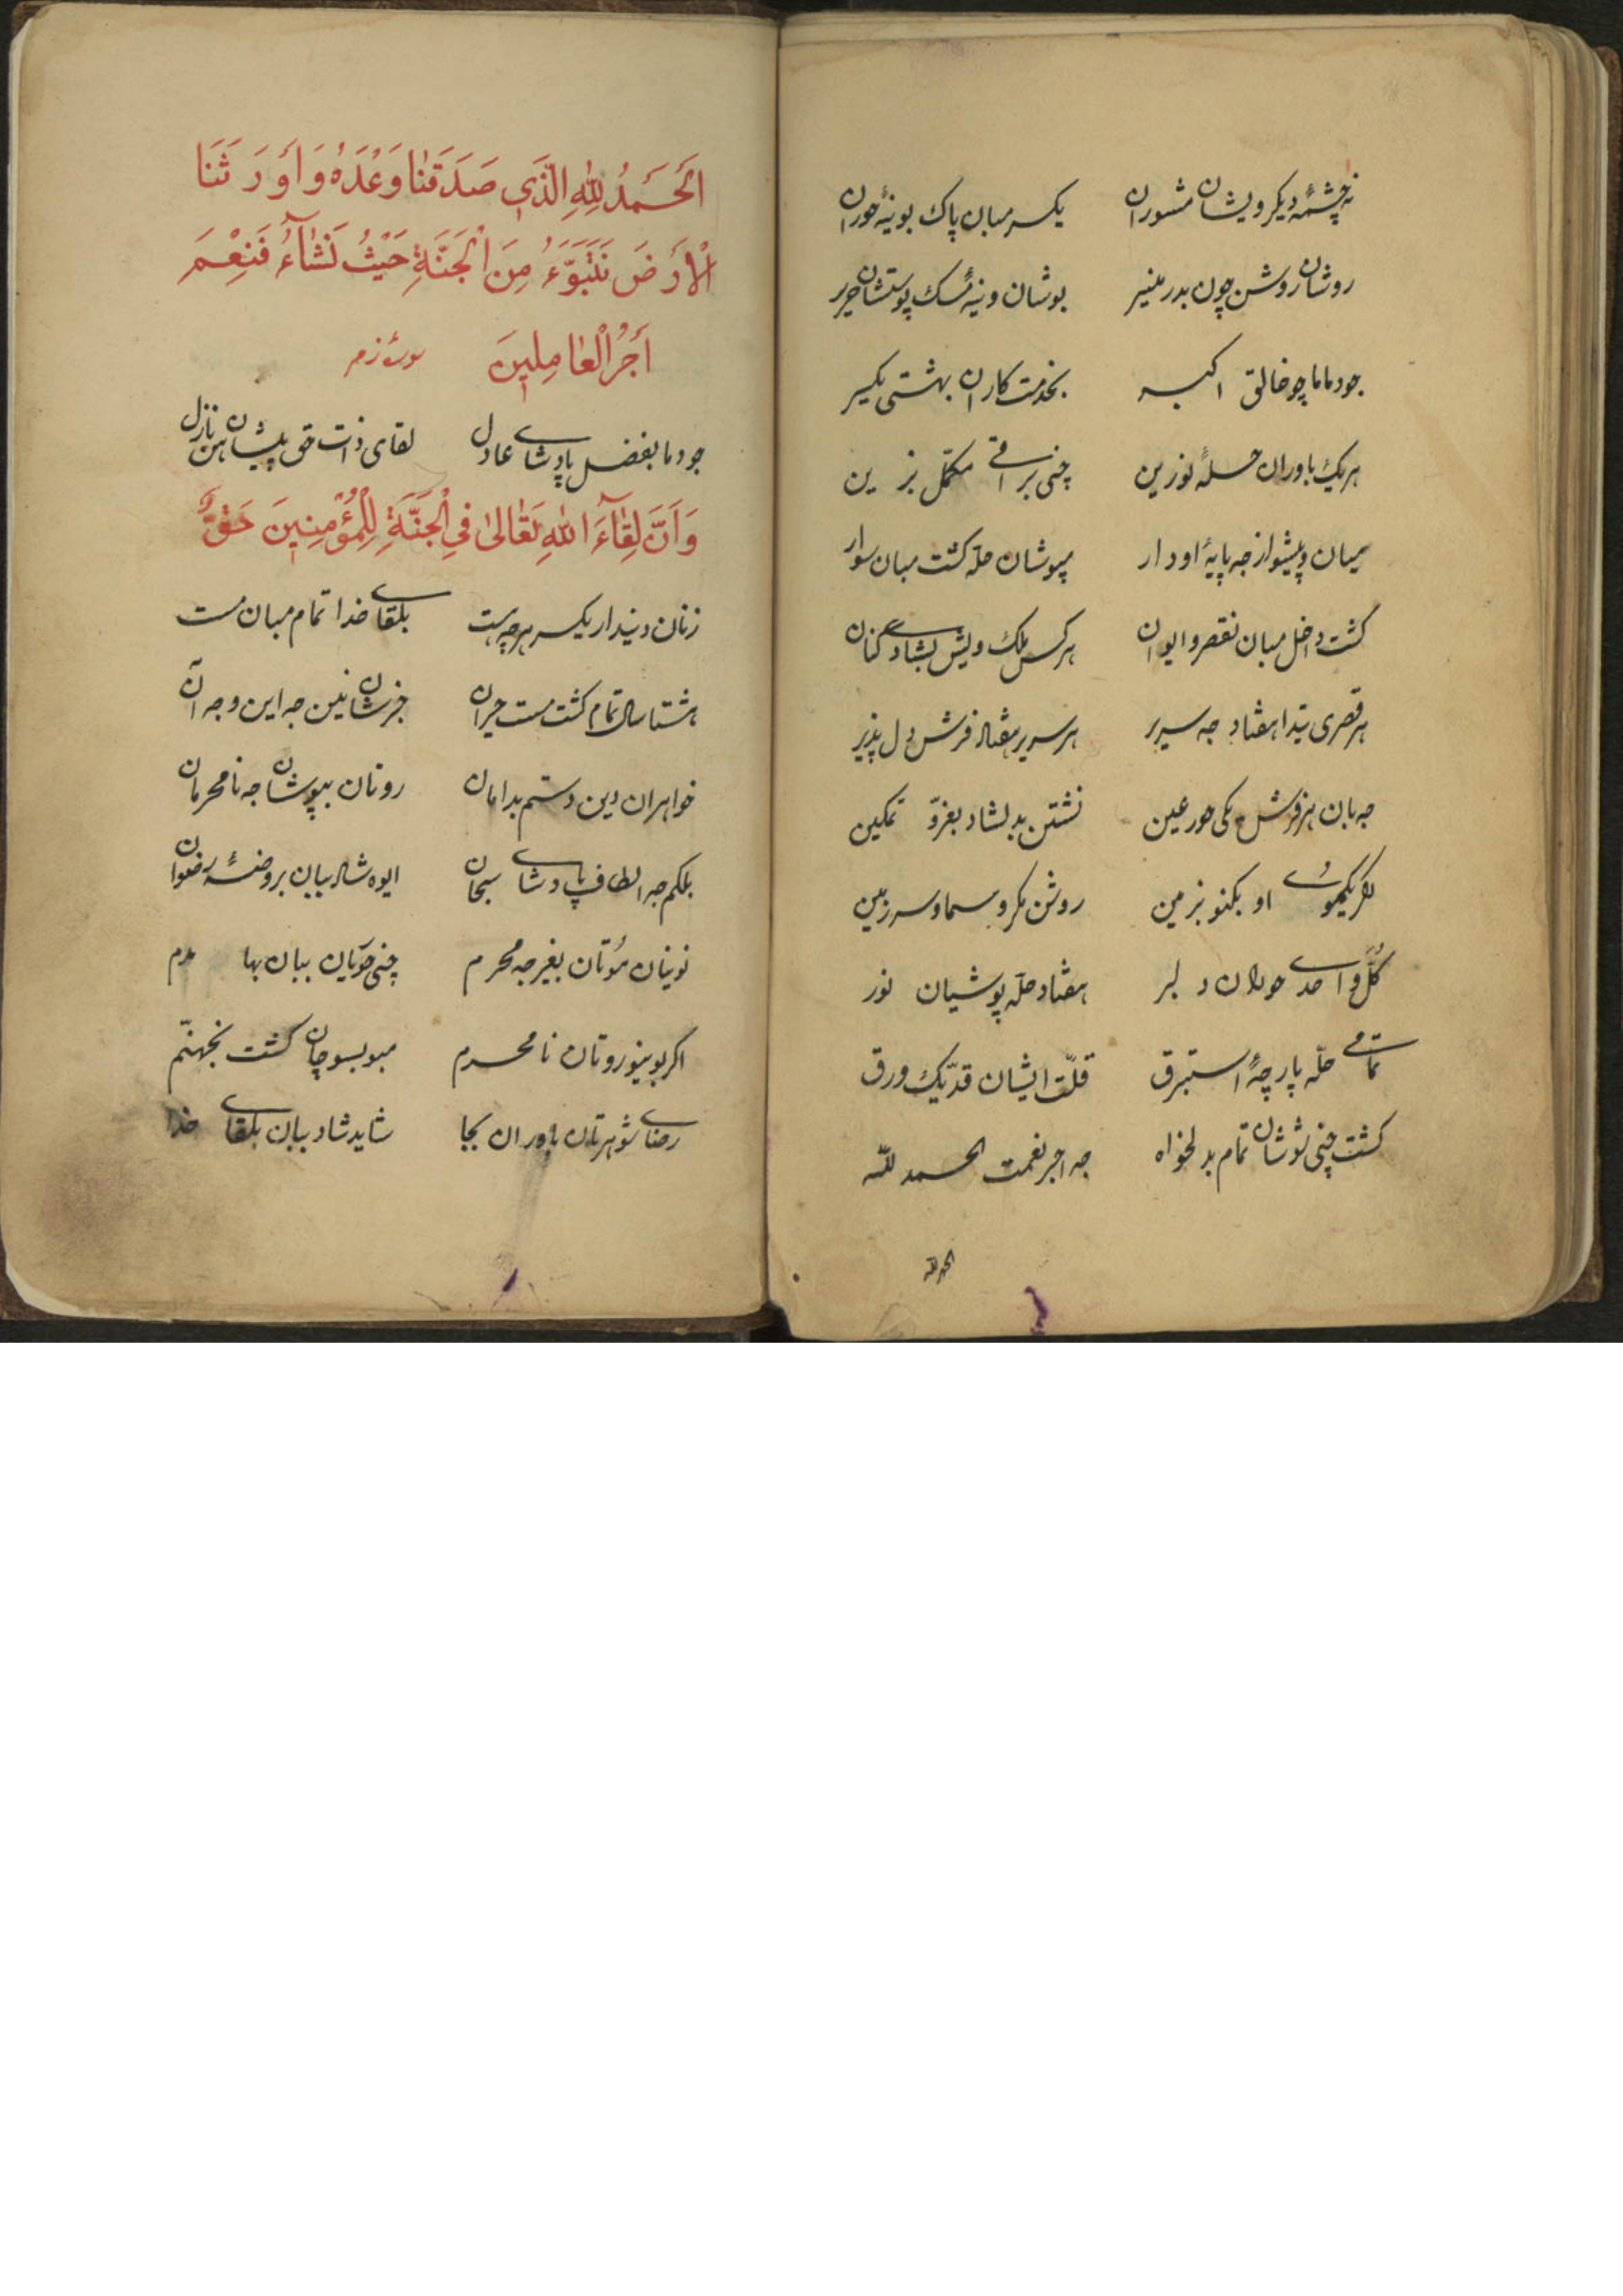 نه چشمهٔ دیکر ویشان مشوران یکسر مبان پاک بوینهٔ حوران
روشان روشن چون بدر منیر بوشان وینهٔ مسک پوستشان حریر
جودماما چو خالق اکبر بخدمت کاران بهشتی یکسر
هر یک باوران حلهٔ نوزین چنی براقی مکمّل بزین
میان و پیشواز جه پایهٔ او دار مپوشان حلّه کشت مبان سوار
کشت داخل مبان نه قصر و ایوان هر کس ملک ویش بشادی کنان
هر قصری تیدا هفتاد جه سریر هر سریر هفتاد فرش دل پذیر
جه بان هر فرش یکی حور عین نشتن بدلشاد بغرّ و تمکین
اکر یکموی او بکنو بزمین روشن مکرو سما و سرزمین
کلّ واحدی حوران دلبر هفتاد حلّه پوشیان نور
تمامی حلّه پارچهٔ استبرق قلّت ایشان قدّ یک ورق
کشت چنی شوشان تمام بدلخواه جه اجر نعمت الحمد للّه
الحمد للّه
اَلْحَمْدُ لِلّٰهِ الَّذي صَدَقَنٰا وَعْدَهُ وَاَوْرَثَنَا
الْاَرْضَ نَتَبَوَّءُ مِنَ الْجَنَّةِ حَيْثُ نَشٰآءُ فَنِعْمَ
اَجْرُ الْعٰامِلِينَ سورهٔ زمر
جودما بفضل پادشای عادل لقای ذات حق پیشان هن نازل
وَاَنَّ لِقٰآءَ اللّٰهِ تَعٰالىٰ فِي الْجَنَّةِ لِلْمُؤْمِنِينَ حَقٌّ
زنان دیندار یکسر هرچه هست بلقای خدا تمام مبان مست
هشتا سال تمام کشت مست حیران خبرشان نین جه این و جه آن
خواهران دین دستم بدامان روتان بپوشان جه نامحرمان
بلکم جه الطاف پادشای سبحان ایوه شاد ببان بروضهٔ رضوان
نوینان موتان بغیر جه محرم چنی حوّیان ببان بهامدم
اکر بوینو روتان نامحرم مبو بسوچان کشت بجهنّم
رضای شوهرتان باوران بجا شاید شاد ببان بلقای خدا